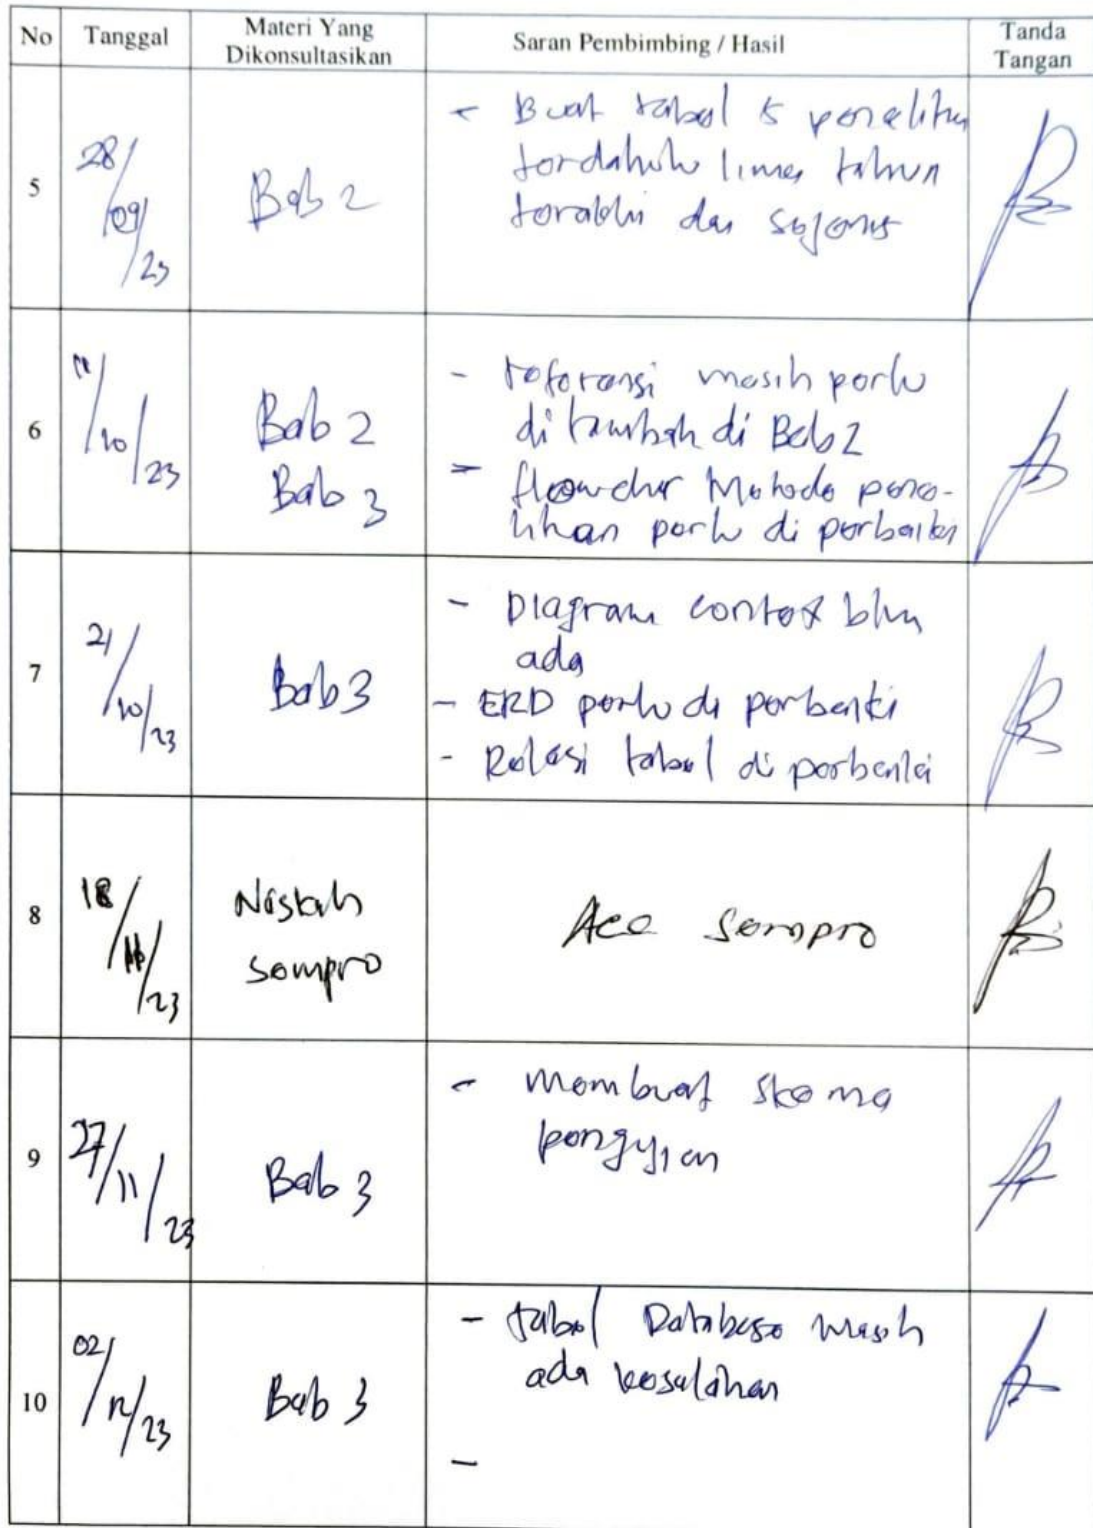 No Tanggal Materi Yang Dikonsultasikan Saran Pembimbing / Hasil Tanda Tangan
5 28/09/23 Bab 2
- Buat tabel 5 peneliti
terdahulu lima tahun
terakhi dan sejenis
6 11/10/23 Bab 2
Bab 3
- referensi masih perlu
di tambah di Bab 2
- flowchar Metode pene-
litian perlu di perbaiki
7 21/10/23 Bab 3
- Diagram contex blm
ada
- ERD perlu di perbaiki
- Relasi tabel di perbaiki
8 18/11/23 Naskah
sempro
Acc Sempro
9 27/11/23 Bab 3
- membuat skema
pengujian
10 02/12/23 Bab 3
- tabel Database masih
ada kesalahan
-